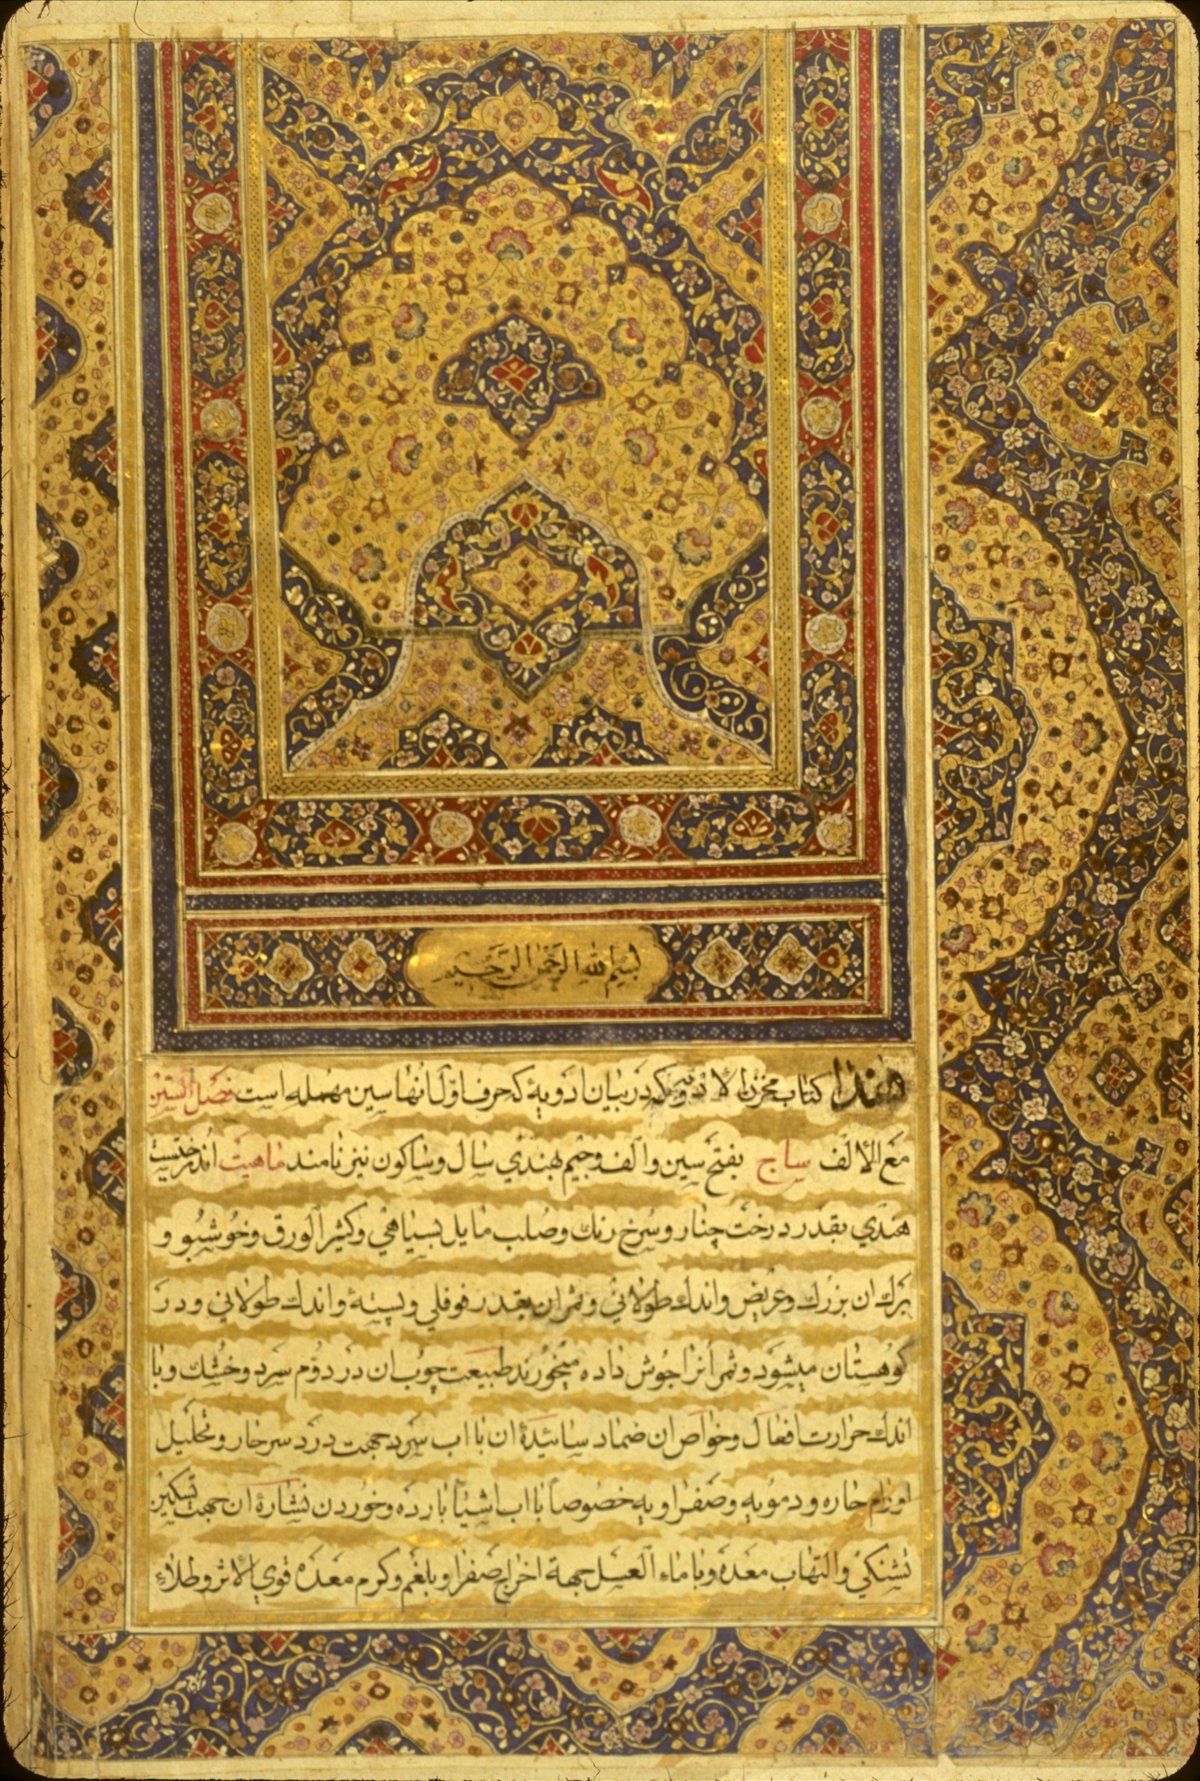 بسم الله الرحمن الرحیم
هذا کتاب مخزن الادویه که در بیان ادویهٔ که حرف اوّل آنها سین مهمله است فصل السّین
مع الالف ساج بفتح سین و الف و جیم بهندی سال و ساکون نیز نامند ماهیت آن درختیست
هندی بقدر درخت چنار و سرخ رنک و صلب مایل بسیاهی و کثیر الورق و خوشبو و
برک ان بزرک و عریض و اندک طولانی و ثمر ان بقدر فوفلی و پستهٔ و اندک طولانی و در
کوهستان میشود و ثمر آنرا جوش داده میخورند طبیعت چوب ان در دوم سرد و خشک و با
اندک حرارت افعال و خواص ان ضماد سائیدهٔ ان با اب سرد جهت درد سر حار و تحلیل
اورام حاره و دمویه و صفراویه خصوصاً با اب اشیا بارده و خوردن نشارهٔ ان جهت تسکین
تشنکی و التهاب معده و با ماء العسل جهة اخراج صفرا و بلغم و کرم معده قوی الاثر و طلاء